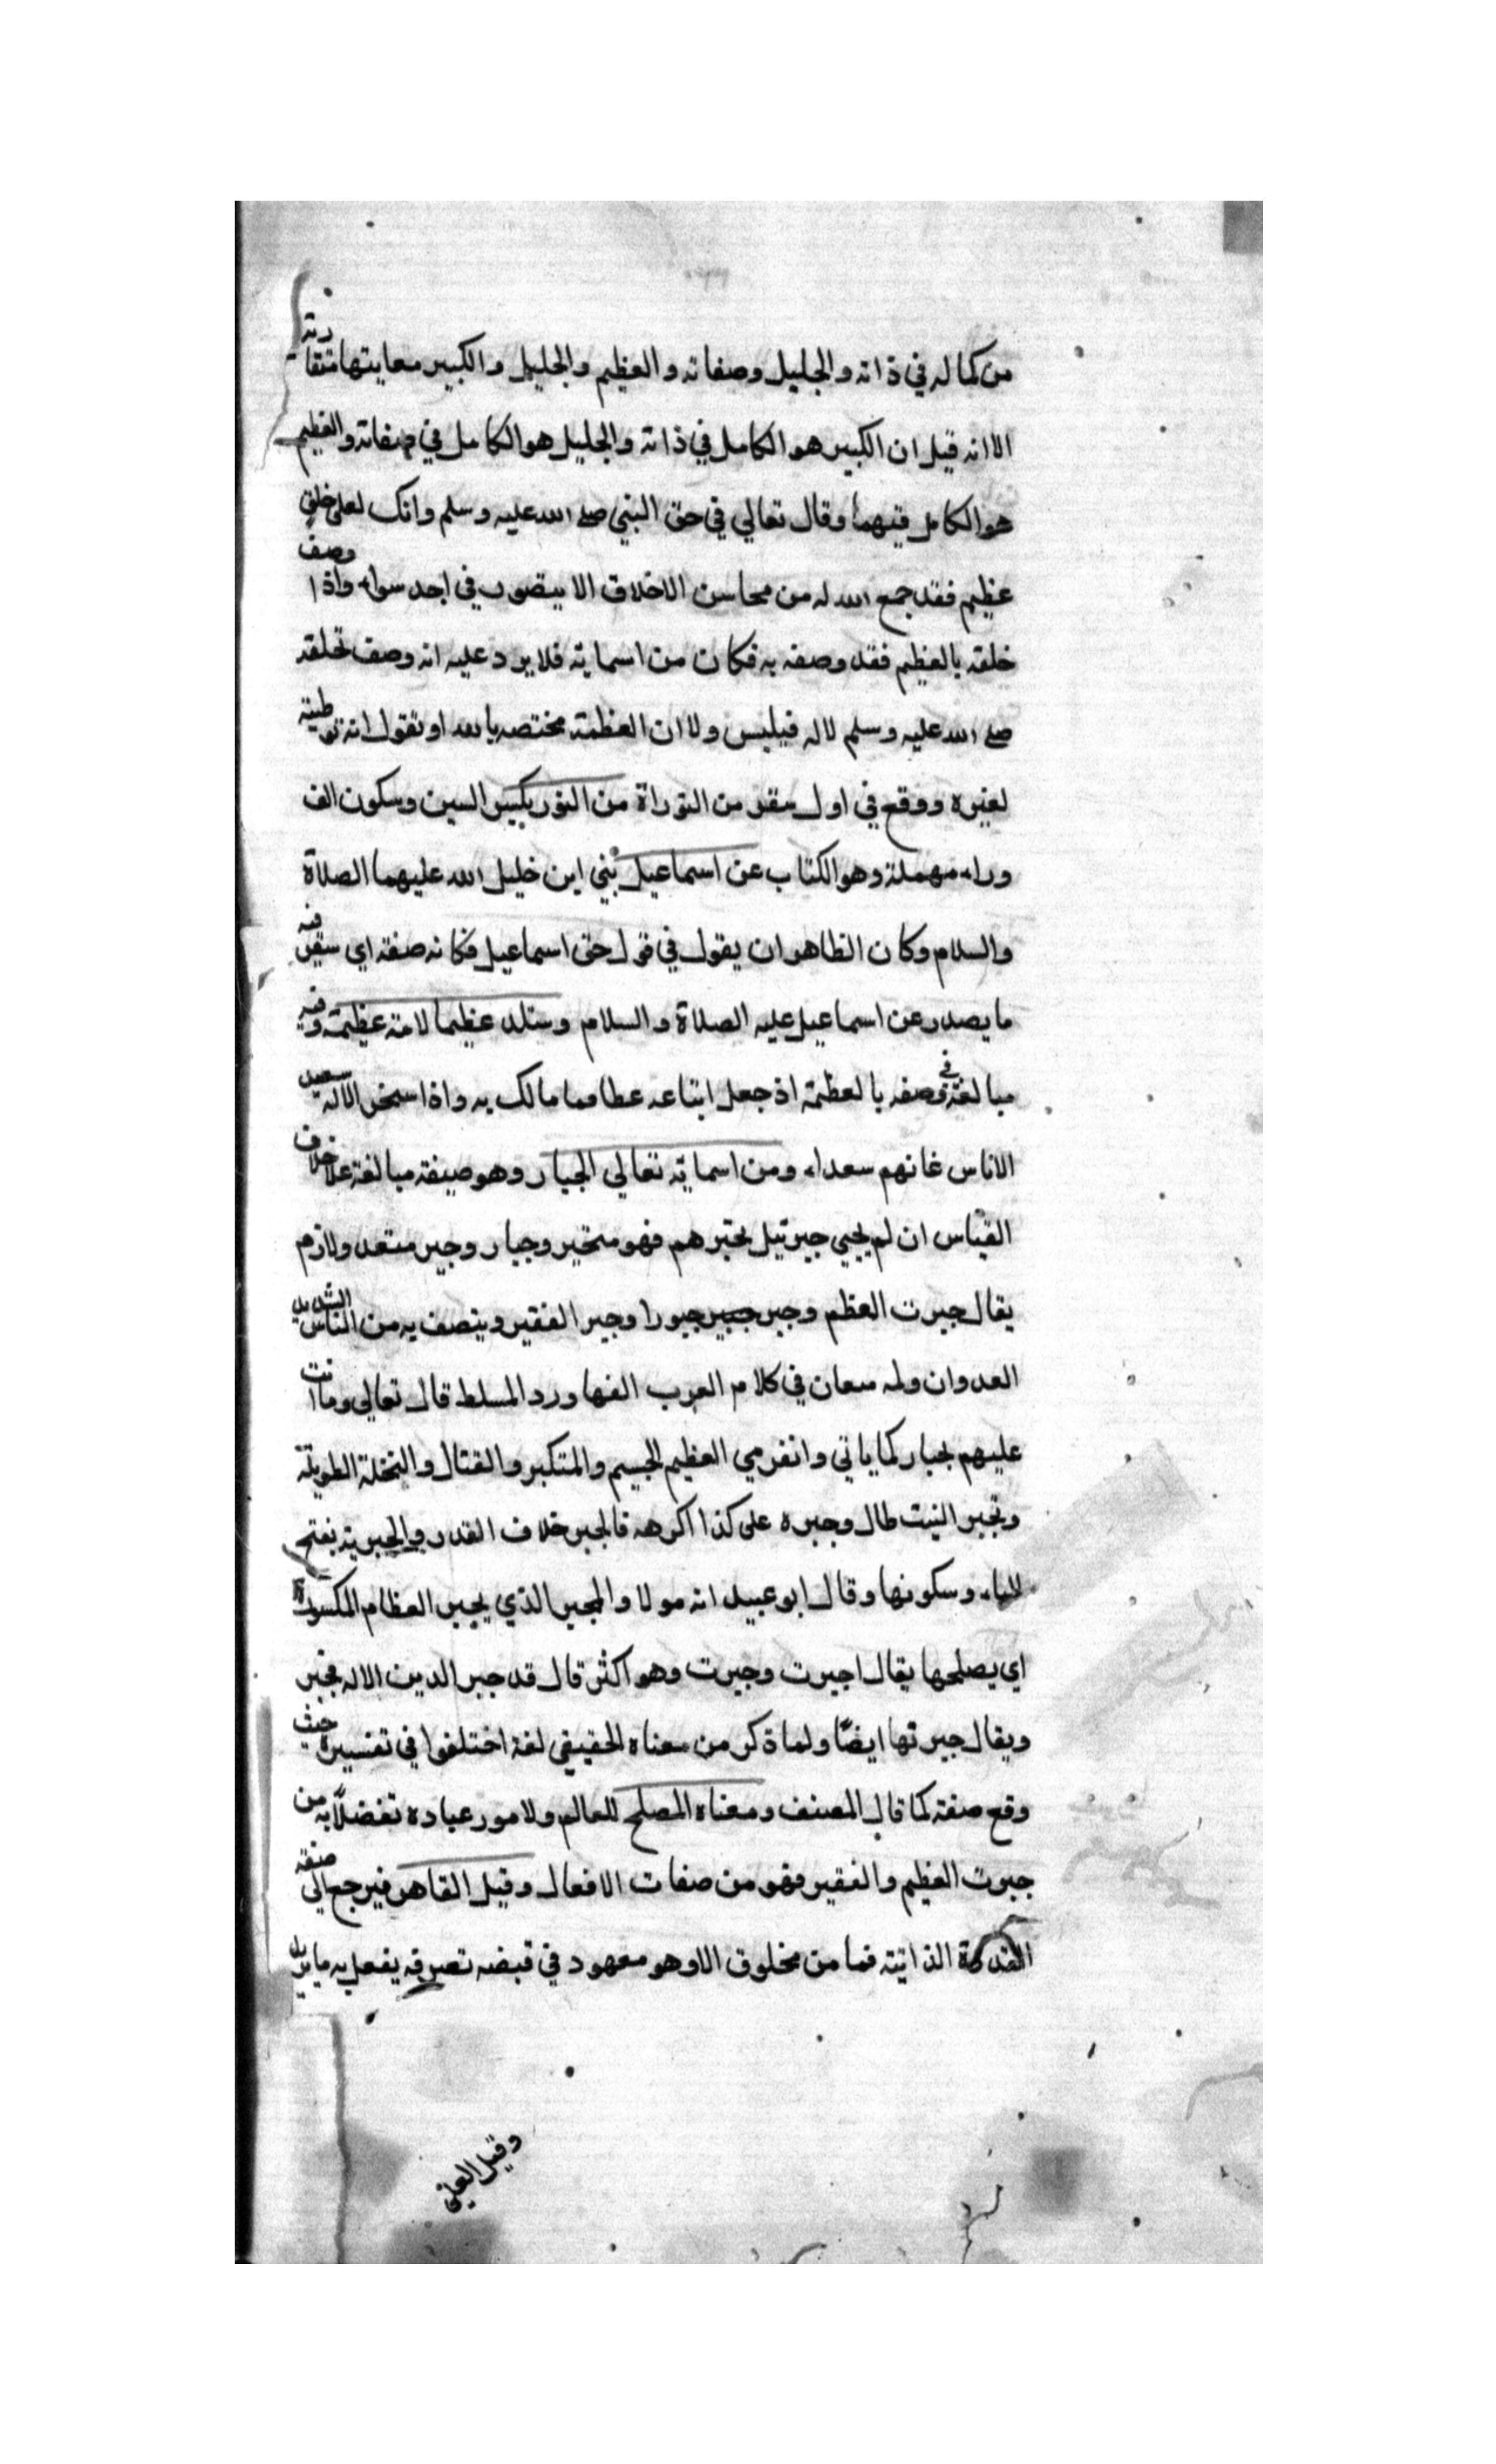 من كماله في ذاته والجليل وصفاته والعظيم والجليل والكبير معاينتها متقاربة
الا انه قيل ان الكبير هو الكامل في ذاته والجليل هو الكامل في صفاته والعظيم
هو الكامل فيهما وقال تعالي في حق النبي صلى الله عليه وسلم وانك لعلى خلق
عظيم فقد جمع الله له من محاسن الاخلاق الا يتصوب في احد سواه واذا وصف
خلقه بالعظيم فقد وصفه به فكان من اسمايه فلا يرد عليه انه وصف تخلقه
صلى الله عليه وسلم لا له فيلبس ولا ان العظمة مختصه بالله او تقول انه توطيئة
لغيره ووقع في اول سفر من التوراة من النور بكسر السين وسكون الف
وراء مهملة وهو الكتاب عن اسماعيل بني ابن خليل الله عليهما الصلاة
والسلام وكان الظاهر ان يقول في قول حق اسماعيل فكانه صفة اي سفر فيه
ما يصدر عن اسماعيل عليه الصلاة والسلام وستلد عظيما لامة عظيمة وفيه
مبالغة في وصفه بالعظمة اذ جعل اتباعه عظاما مالك به واذا اسخر الاله سعيد
الاناس غانهم سعداء ومن اسمايه تعالي الجبار وهو صيغة مبالغة علا خلاف
القياس ان لم يجيي جبرئيل بجبرهم فهو متجبر وجبار وجبر متعد ولازم
يقال جبرت العظم وجبر جبير جبورا وجبر الفقير ويتصف به من الناس الشديد
العدوان وله معان في كلام العرب الفها ورد المسلط قال تعالي وما انت
عليهم بجبار كما ياتي وانفرمي العظيم الجسيم والمتكبر والقتال والنخلة الطويلة
وتجبر النبت طال وجبره على كذا اكرهه فالجبر خلاف القدر والجبرية بفتح
الباء وسكونها وقال ابو عبيد انه مولا والمجبر الذي يجبر العظام المكسورة
اي يصلحها يقال اجبرت وجبرت وهو اكثر قال قد جبر الدين الاله فجبر
ويقال جبرتها ايضًا ولما ذكر من معناه الحقيقي لغة اختلفوا في تفسيره حيث
وقع صفة كما قال المصنف ومعناه المصلح للعالم ولامور عباده تفضلاً به من
جبرت العظيم والفقير فهو من صفات الافعال وقيل القاهر فيرجع الي صفة
القدرة الذاتية فما من مخلوق الا وهو مقهود في قبضه تصرفه يفعل به ما يريد
وقيل العلي